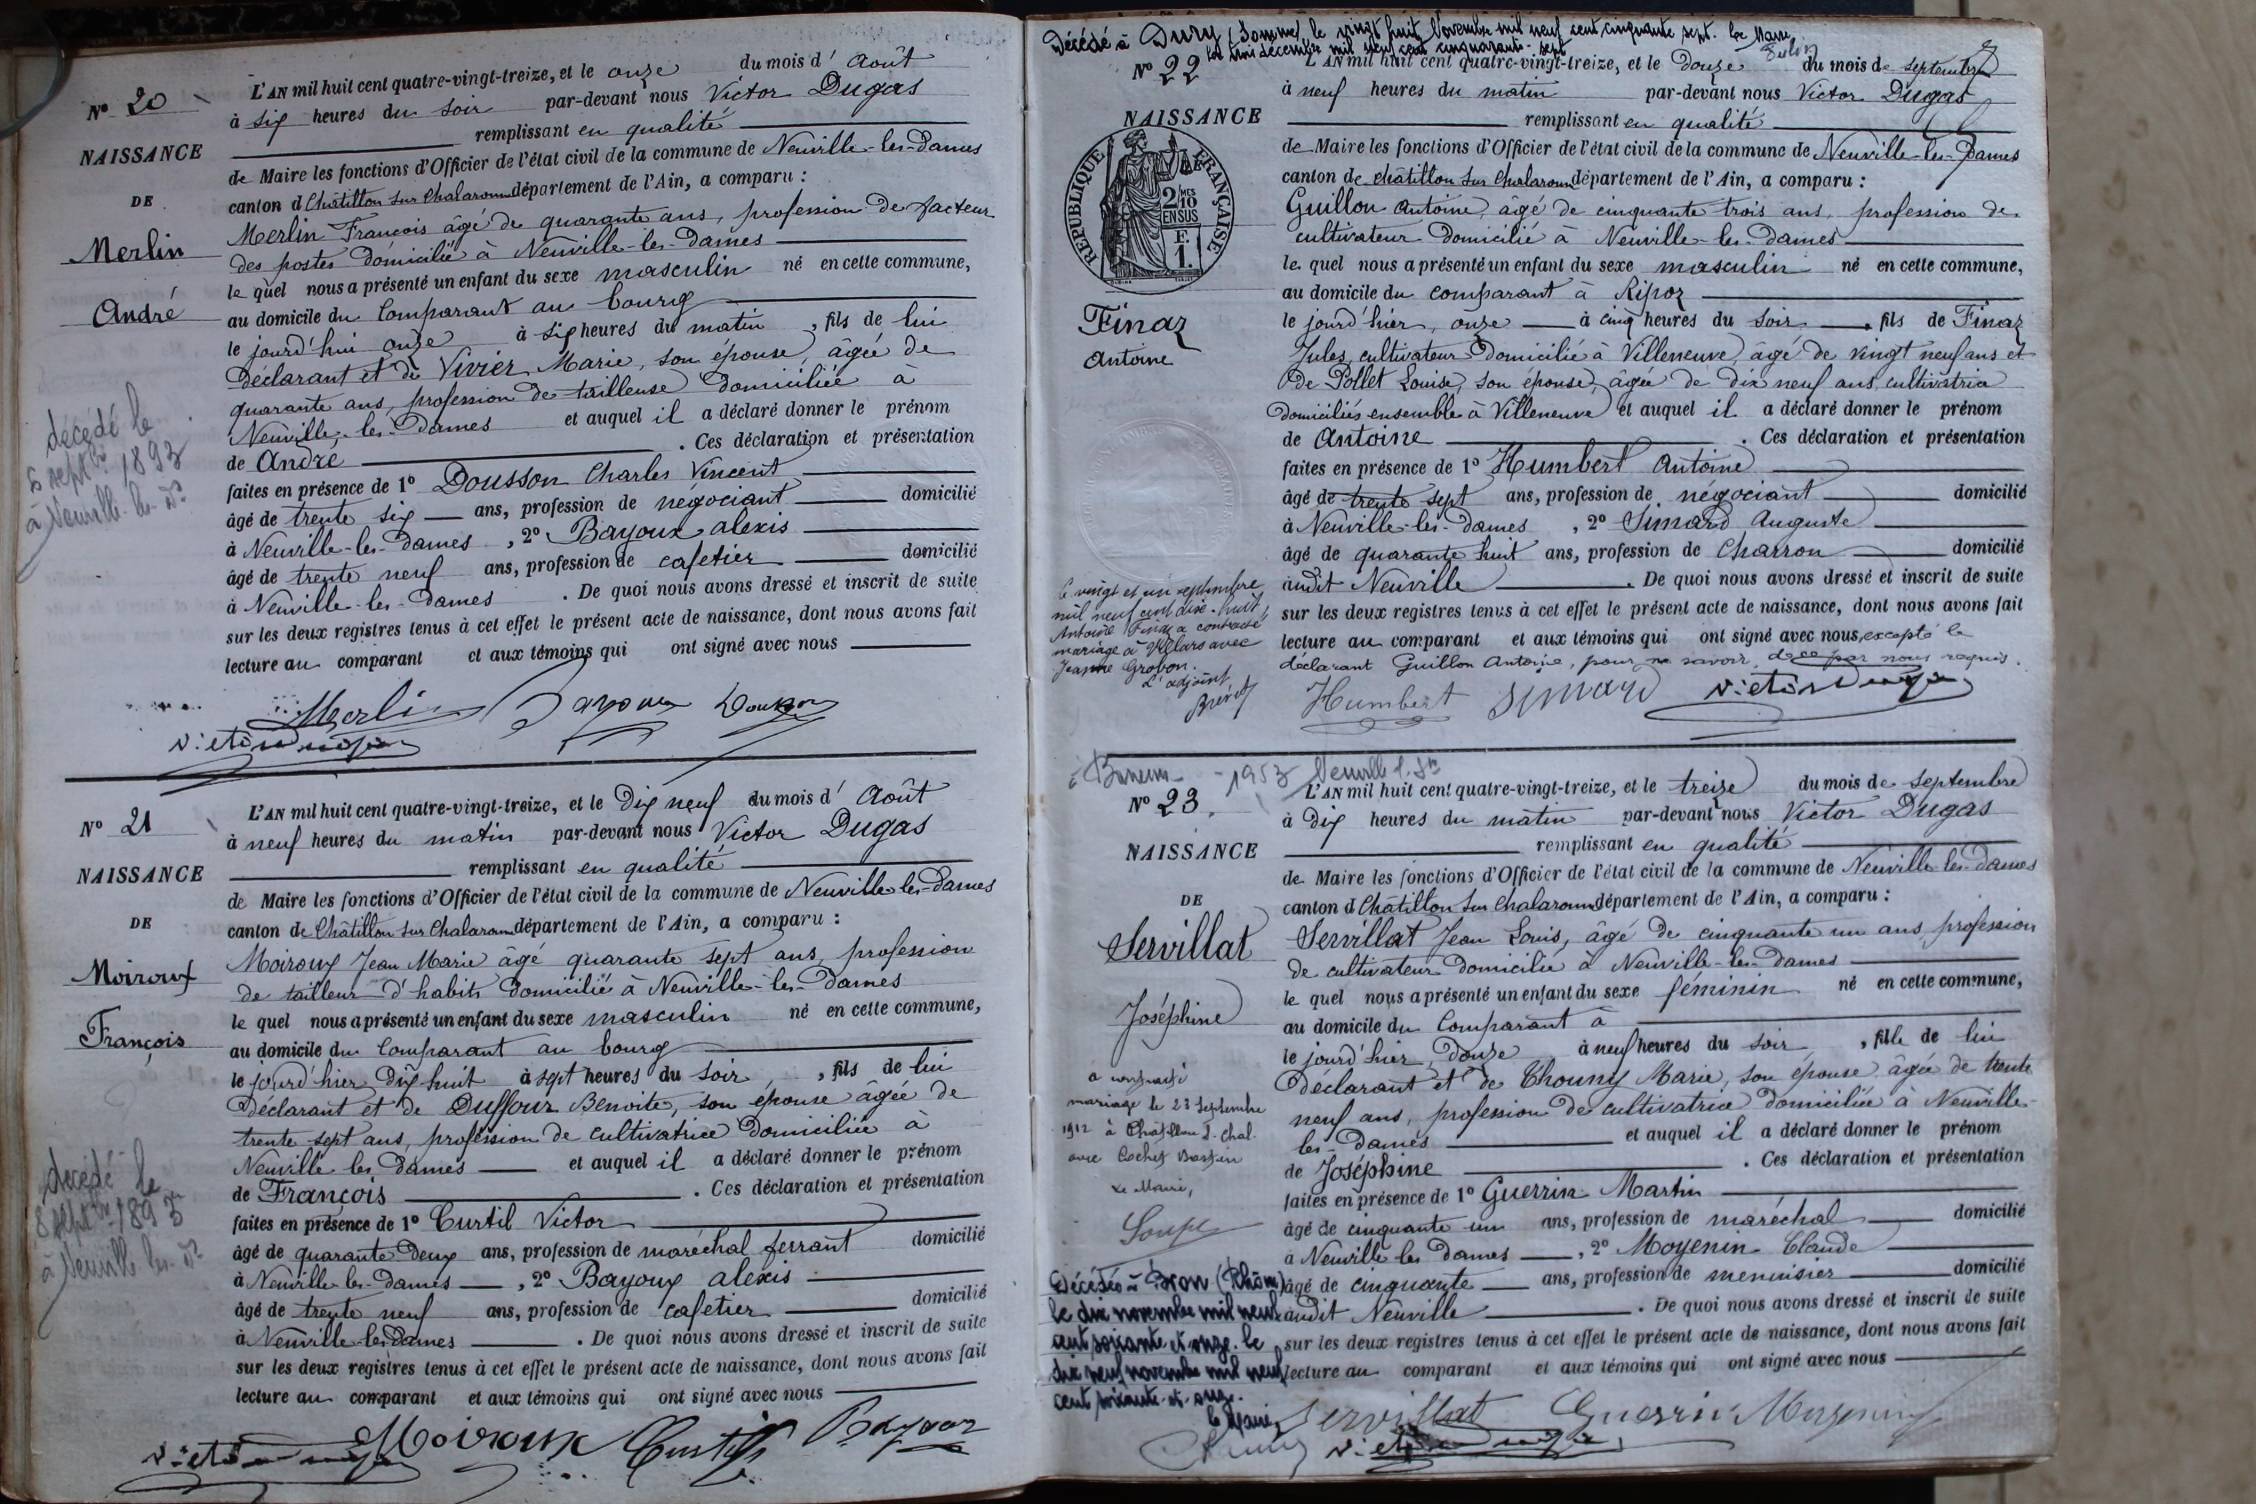 N° 20
NAISSANCE
DE
Merlin
André
décédé le
sept bre 1893
à Neuville-les-Des
L'AN mil huit cent quatre-vingt-treize, et le onze du mois d' Août
à six heures du soir par-devant nous Victor Dugas
remplissant en qualité
de Maire les fonctions d'Officier de l'état civil de la commune de Neuville-les-Dames
canton d Châtillon sur Chalaronne département de l'Ain, a comparu :
Merlin François âgé de quarante ans, profession de facteur
des postes domicilié à Neuville-les-Dames
le quel nous a présenté un enfant du sexe masculin né en cette commune,
au domicile du Comparant au bourg
le jourd'hui onze à six heures du matin, fils de lui
déclarant et de Vivier Marie, son épouse, âgée de
quarante ans, profession de tailleuse domiciliée à
Neuville-les-Dames et auquel il a déclaré donner le prénom
de André . Ces déclaration et présentation
faites en présence de 1° Dousson Charles Vincent
âgé de trente six ans, profession de négociant domicilié
à Neuville-les-Dames, 2° Bayoux alexis
âgé de trente neuf ans, profession de cafetier domicilié
à Neuville-les-Dames . De quoi nous avons dressé et inscrit de suite
sur les deux registres tenus à cet effet le présent acte de naissance, dont nous avons fait
lecture au comparant et aux témoins qui ont signé avec nous
Merlin Bayoux Dousson
Victor Dugas
N° 21
NAISSANCE
DE
Moiroux
François
décédé le
8 sept bre 1893
à Neuville-les-Des
L'AN mil huit cent quatre-vingt-treize, et le Dix neuf du mois d' Août
à neuf heures du matin par-devant nous Victor Dugas
remplissant en qualité
de Maire les fonctions d'Officier de l'état civil de la commune de Neuville-les-Dames
canton de Châtillon sur Chalaronne département de l'Ain, a comparu :
Moiroux Jean Marie âgé quarante sept ans, profession
de tailleur d'habits domicilié à Neuville-les-Dames
le quel nous a présenté un enfant du sexe masculin né en cette commune,
au domicile du Comparant au bourg
le jourd'hier Dix huit à sept heures du soir, fils de lui
Déclarant et de Duffour Benoite, son épouse âgée de
trente sept ans, profession de cultivatrice domiciliée à
Neuville les Dames et auquel il a déclaré donner le prénom
de François . Ces déclaration et présentation
faites en présence de 1° Curtil Victor
âgé de quarante Deux ans, profession de maréchal ferrant domicilié
à Neuville-les-Dames, 2° Bayoux alexis
âgé de trente neuf ans, profession de cafetier domicilié
à Neuville-les-Dames . De quoi nous avons dressé et inscrit de suite
sur les deux registres tenus à cet effet le présent acte de naissance, dont nous avons fait
lecture au comparant et aux témoins qui ont signé avec nous
Moiroux Curtil Bayoux
Victor Dugas
Décédé à Dury (Somme) le vingt huit Novembre mil neuf cent cinquante sept. Le Maire
décembre mil neuf cent cinquante-sept
N° 22
NAISSANCE
RÉPUBLIQUE FRANÇAISE
2/10 MES
EN SUS
F.
1.
Finaz
Antoine
Le vingt et un septembre
mil neuf cent dix-huit,
Antoine Finaz a contracté
mariage à Villars avec
Jeanne Grobon.
L'adjoint
L'AN mil huit cent quatre-vingt-treize, et le Douze du mois de septembre
à neuf heures du matin par-devant nous Victor Dugas
remplissant en qualité
de Maire les fonctions d'Officier de l'état civil de la commune de Neuville-les-Dames
canton de Châtillon sur Chalaronne département de l'Ain, a comparu :
Guillon Antoine, âgé de cinquante trois ans, profession de
cultivateur Domicilié à Neuville-les-Dames
le quel nous a présenté un enfant du sexe masculin né en cette commune,
au domicile du comparant à Ripoz
le jourd'hier, onze à cinq heures du soir, fils de Finaz
Jules, cultivateur Domicilié à Villeneuve, âgé de vingt neuf ans et
de Pollet Louise, son épouse, âgée de dix neuf ans, cultivatrice
domiciliés ensemble à Villeneuve et auquel il a déclaré donner le prénom
de Antoine . Ces déclaration et présentation
faites en présence de 1° Humbert Antoine
âgé de trente sept ans, profession de négociant domicilié
à Neuville-les-Dames, 2° Simard Auguste
âgé de quarante huit ans, profession de Charron domicilié
audit Neuville . De quoi nous avons dressé et inscrit de suite
sur les deux registres tenus à cet effet le présent acte de naissance, dont nous avons fait
lecture au comparant et aux témoins qui ont signé avec nous, excepté le
déclarant Guillon Antoine, pour ne savoir, de ce par nous requis.
Humbert Simard Victor Dugas
1953 Neuville l. Des
N° 23
NAISSANCE
DE
Servillat
Joséphine
a contracté
mariage le 23 Septembre
1912 à Châtillon s. Chal.
avec Cochet
Le Maire,
Décédée à Bron (Rhône)
le dix novembre mil neuf
cent soixante et onze. le
dix neuf novembre mil neuf
cent soixante-et-onze.
le Maire
L'AN mil huit cent quatre-vingt-treize, et le treize du mois de septembre
à Dix heures du matin par-devant nous Victor Dugas
remplissant en qualité
de Maire les fonctions d'Officier de l'état civil de la commune de Neuville-les-Dames
canton d Châtillon sur Chalaronne département de l'Ain, a comparu :
Servillat Jean Louis, âgé de cinquante un ans, profession
de cultivateur domicilié à Neuville-les-Dames
le quel nous a présenté un enfant du sexe féminin né en cette commune,
au domicile du Comparant à
le jourd'hier, Douze à neuf heures du soir, fille de lui
Déclarant et de Thouny Marie, son épouse âgée de trente
neuf ans, profession de cultivatrice domiciliée à Neuville-
les-Dames et auquel il a déclaré donner le prénom
de Joséphine . Ces déclaration et présentation
faites en présence de 1° Guerrin Martin
âgé de cinquante un ans, profession de maréchal domicilié
à Neuville les Dames, 2° Moyenin Claude
âgé de cinquante ans, profession de menuisier domicilié
audit Neuville . De quoi nous avons dressé et inscrit de suite
sur les deux registres tenus à cet effet le présent acte de naissance, dont nous avons fait
lecture au comparant et aux témoins qui ont signé avec nous
Servillat Guerrin Moyenin
Victor Dugas